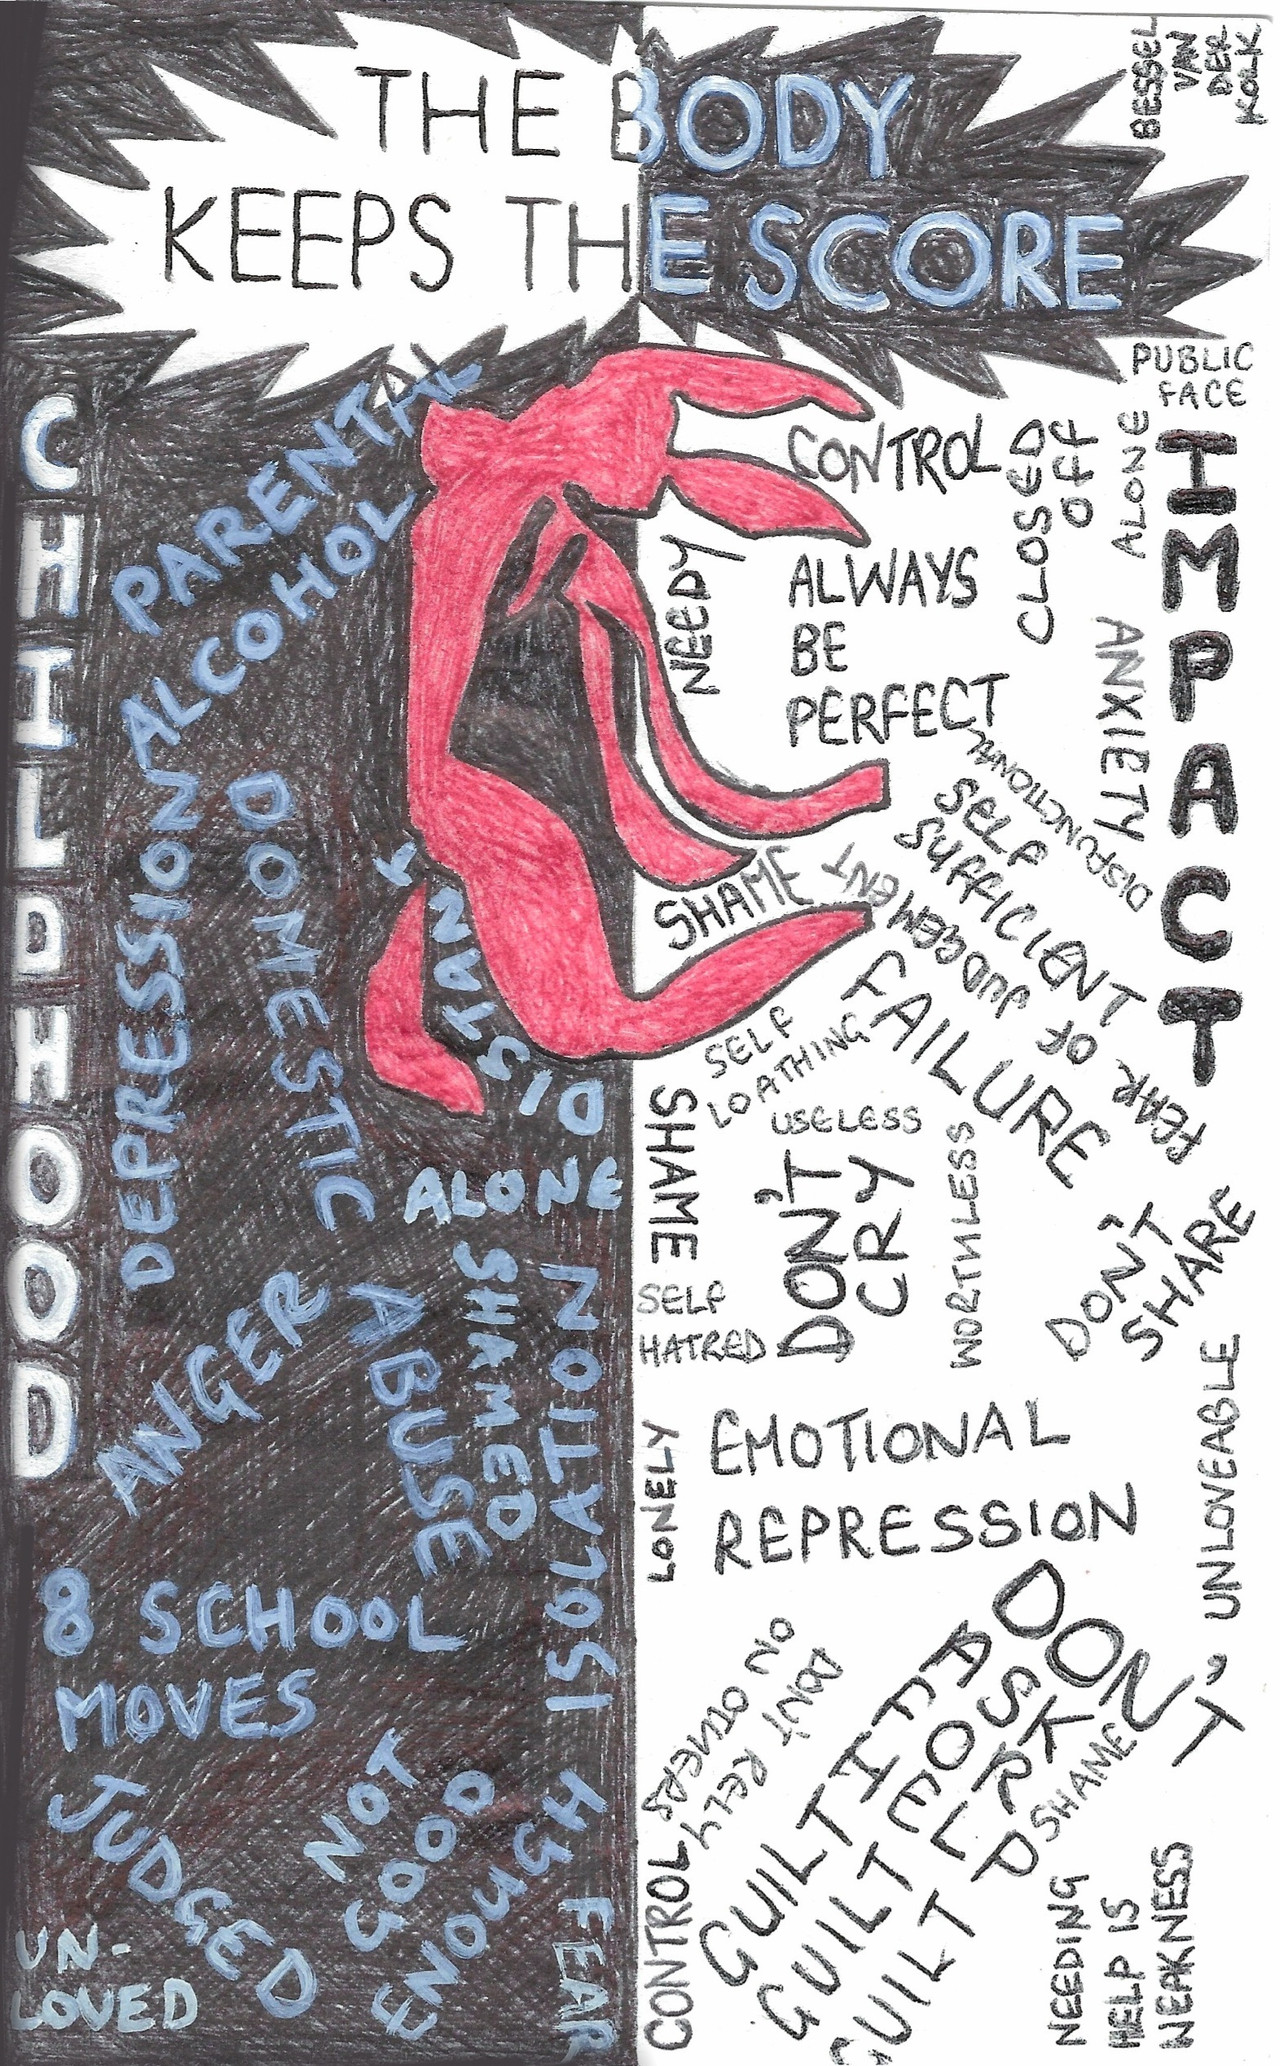 THE BODY
KEEPS THE SCORE
BESSEL
VAN
DER
KOLK
CHILDHOOD
PARENTAL
ALCOHOL
DEPRESSION
DOMESTIC
ABUSE
DISTANT
ALONE
SHAMED
ISOLATION
ANGER
8 SCHOOL
MOVES
JUDGED
NOT
GOOD
ENOUGH
FEAR
UN-
LOVED
PUBLIC
FACE
IMPACT
CONTROL
CLOSED
OFF
ALONE
NEEDY
ALWAYS
BE
PERFECT
ANXIETY
DISFUNCTIONAL
SELF
SUFFICIENT
FEAR OF JUDGEMENT
SHAME
FAILURE
SELF
LOATHING
USELESS
SHAME
DON'T
CRY
WORTHLESS
DON'T
SHARE
SELF
HATRED
UNLOVEABLE
LONELY
EMOTIONAL
REPRESSION
DON'T
ASK
FOR
HELP
SHAME
DON'T RELY
ON OTHERS
CONTROL
GUILT
GUILT
GUILT
NEEDING
HELP IS
WEAKNESS